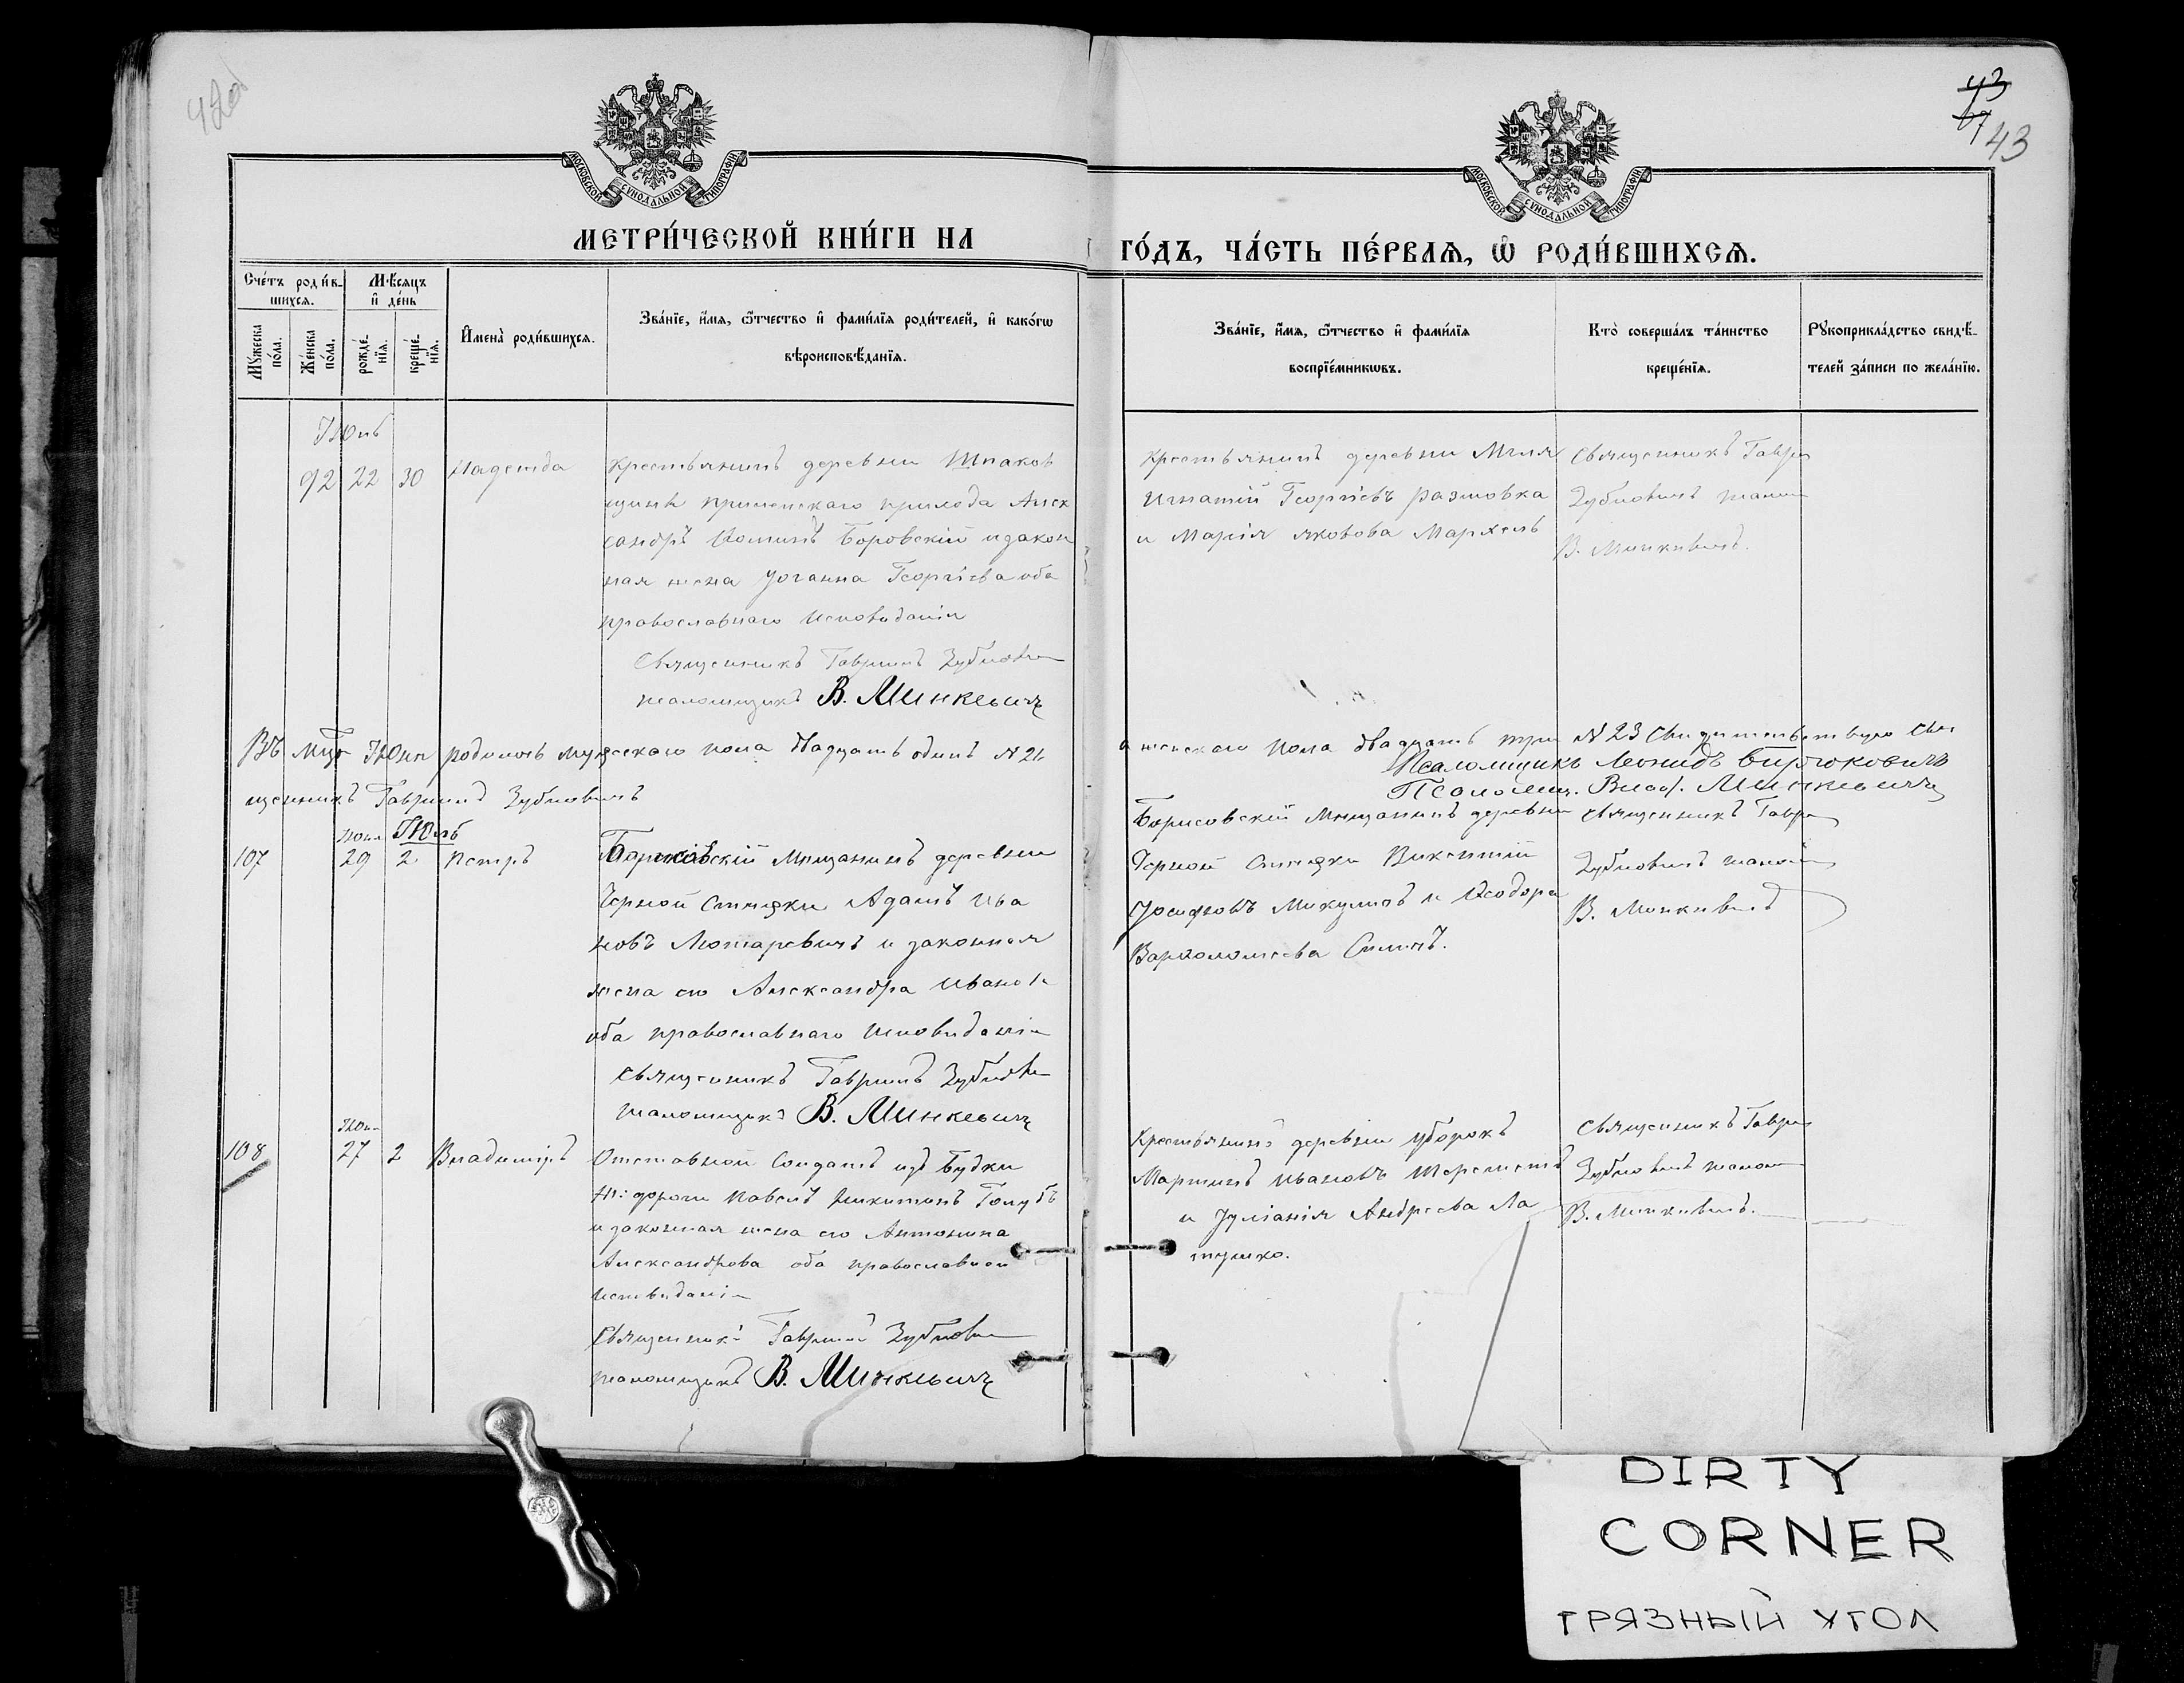 42об
43
43
МОСКОВСКОЙ СУНОДАЛЬНОЙ ТИПОГРАФІИ
МОСКОВСКОЙ СУНОДАЛЬНОЙ ТИПОГРАФІИ
МЕТРИ́ЧЕСКОЙ КНИ́ГИ НА
ГО́ДЪ, ЧА́СТЬ ПЕ́РВАѦ, Ѽ РОДИ́ВШИХСѦ.
Сче́тъ роди́в-
шихсѧ.
Мꙋ́жеска по́ла.
Же́нска по́ла.
Мѣ́сѧцъ
и҆ де́нь
рожде́-
нїѧ.
креще́-
нїѧ.
И҆мена̀ роди́вшихсѧ.
Зва́нїе, и҆́мѧ, ѻ҆́тчество и҆ фами́лїѧ роди́телей, и҆ како́гѡ
вѣроисповѣ́данїѧ.
Зва́нїе, и҆́мѧ, ѻ҆́тчество и҆ фами́лїѧ
воспрїе́мникѡвъ.
Кто̀ соверша́лъ та́инство
креще́нїѧ.
Рꙋкоприкла́дство свидѣ́-
телей за́писи по жела́нїю.
Іюнь
92 22 30 Надежда
Крестьянинъ деревни Шпаков
щины прихода Алек
сандръ Ѳоминъ Боровскій и закон
ная жена Іоганна Георгіева оба
православнаго исповѣданія
Священникъ Гавріилъ Зубкови
псаломщикъ В. Минкевичъ
Крестьянинъ деревни Мгля
Игнатій Георгіевъ
и Марія Яковова Мархель
Священникъ Гаври
Зубковичъ
В. Минкевичъ.
Въ Іюнѣ родилось мужескаго пола двадцать одинъ №21
а женскаго пола двадцать три №23 Свидѣтельствую Свя
щенникъ Гавріилъ Зубковичъ
Псаломщикъ Леонидъ Бирюковичъ
Псаломщ. Минкевичъ
Іюль
107 29 2 Петръ
Борисовскій Мѣщанинъ деревни
Черной Адамъ Ива
новъ Лютаревичъ и законная
жена его Александра Иванов
оба православнаго исповѣданія
Священникъ Гавріилъ Зубкови
псаломщикъ В. Минкевичъ
Борисовскій Мѣщанинъ деревни
Черной Викентій
Іосифовъ Микуличъ и Ѳеодора
Варѳоломеева
Священникъ Гаври
Зубковичъ
В. Минкевичъ
108 27 2 Владиміръ
Отставной Солдатъ изъ будки
ж: дороги Павелъ Никитинъ Голубъ
и законная жена его Антонина
Александрова оба православнаго
исповѣданія
Священникъ Гавріилъ Зубкови
псаломщикъ В. Минкевичъ
Крестьянинъ деревни Уборокъ
Мартинъ Ивановъ Шереметъ
и Іуліанія Андреева Ла
Священникъ Гаври
Зубковичъ
В. Минкевичъ.
DIRTY
CORNER
ГРЯЗНЫЙ УГОЛ